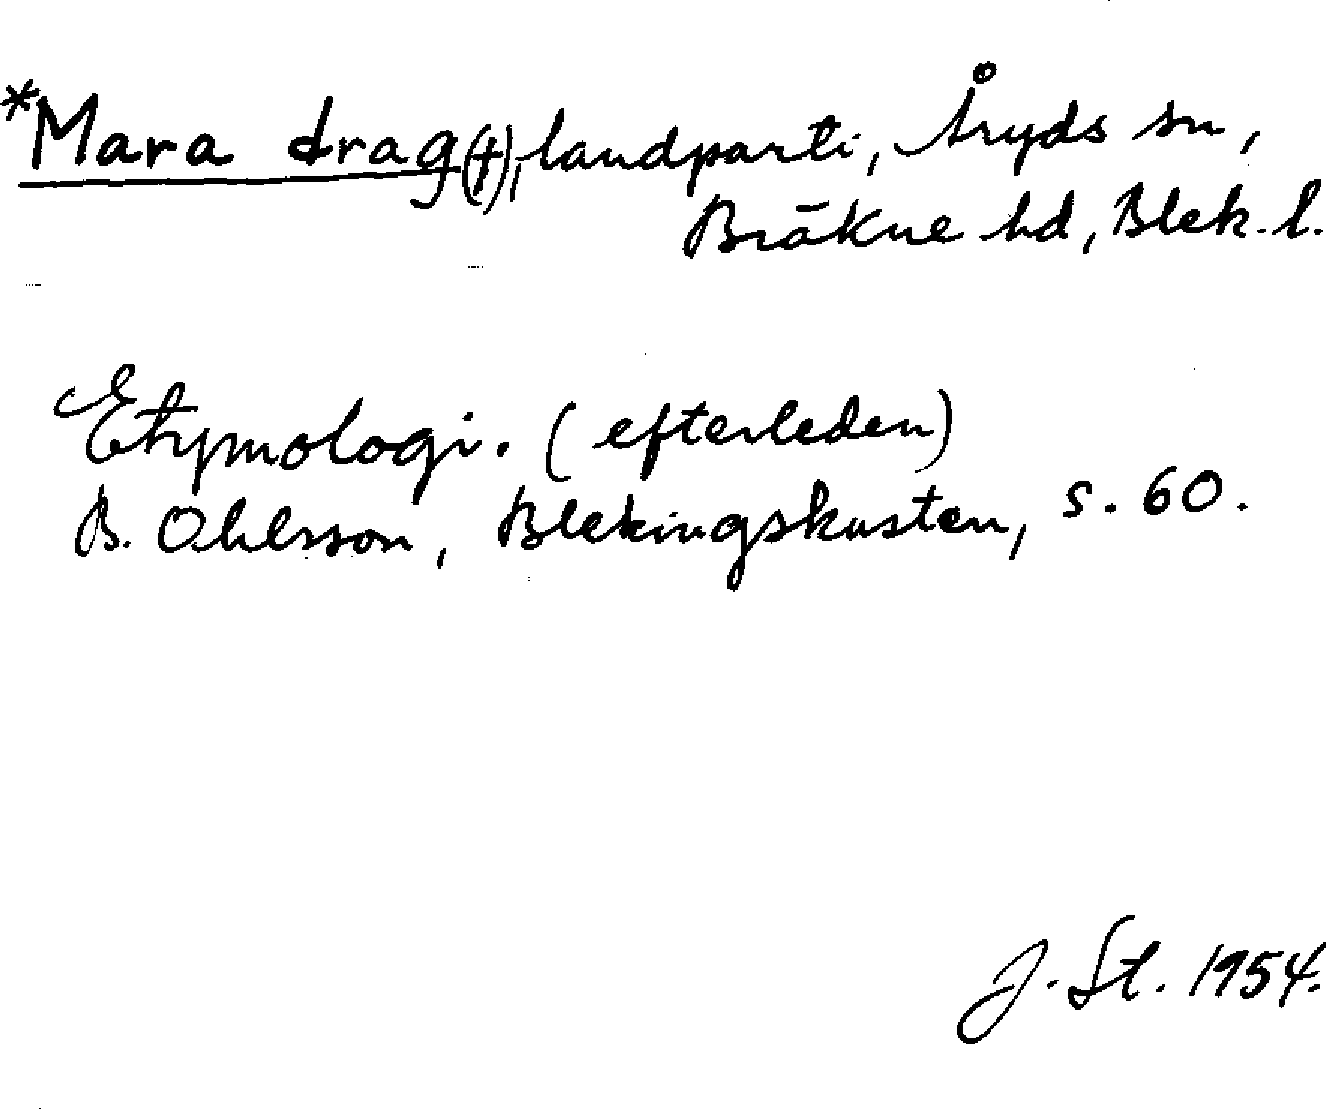 *Mara drag(†), landparti, Åryds sn,
Bräkne hd, Blek. l.
Etymologi. (efterleden)
B. Ohlsson, Blekingskusten, s. 60.
J. St. 1954.